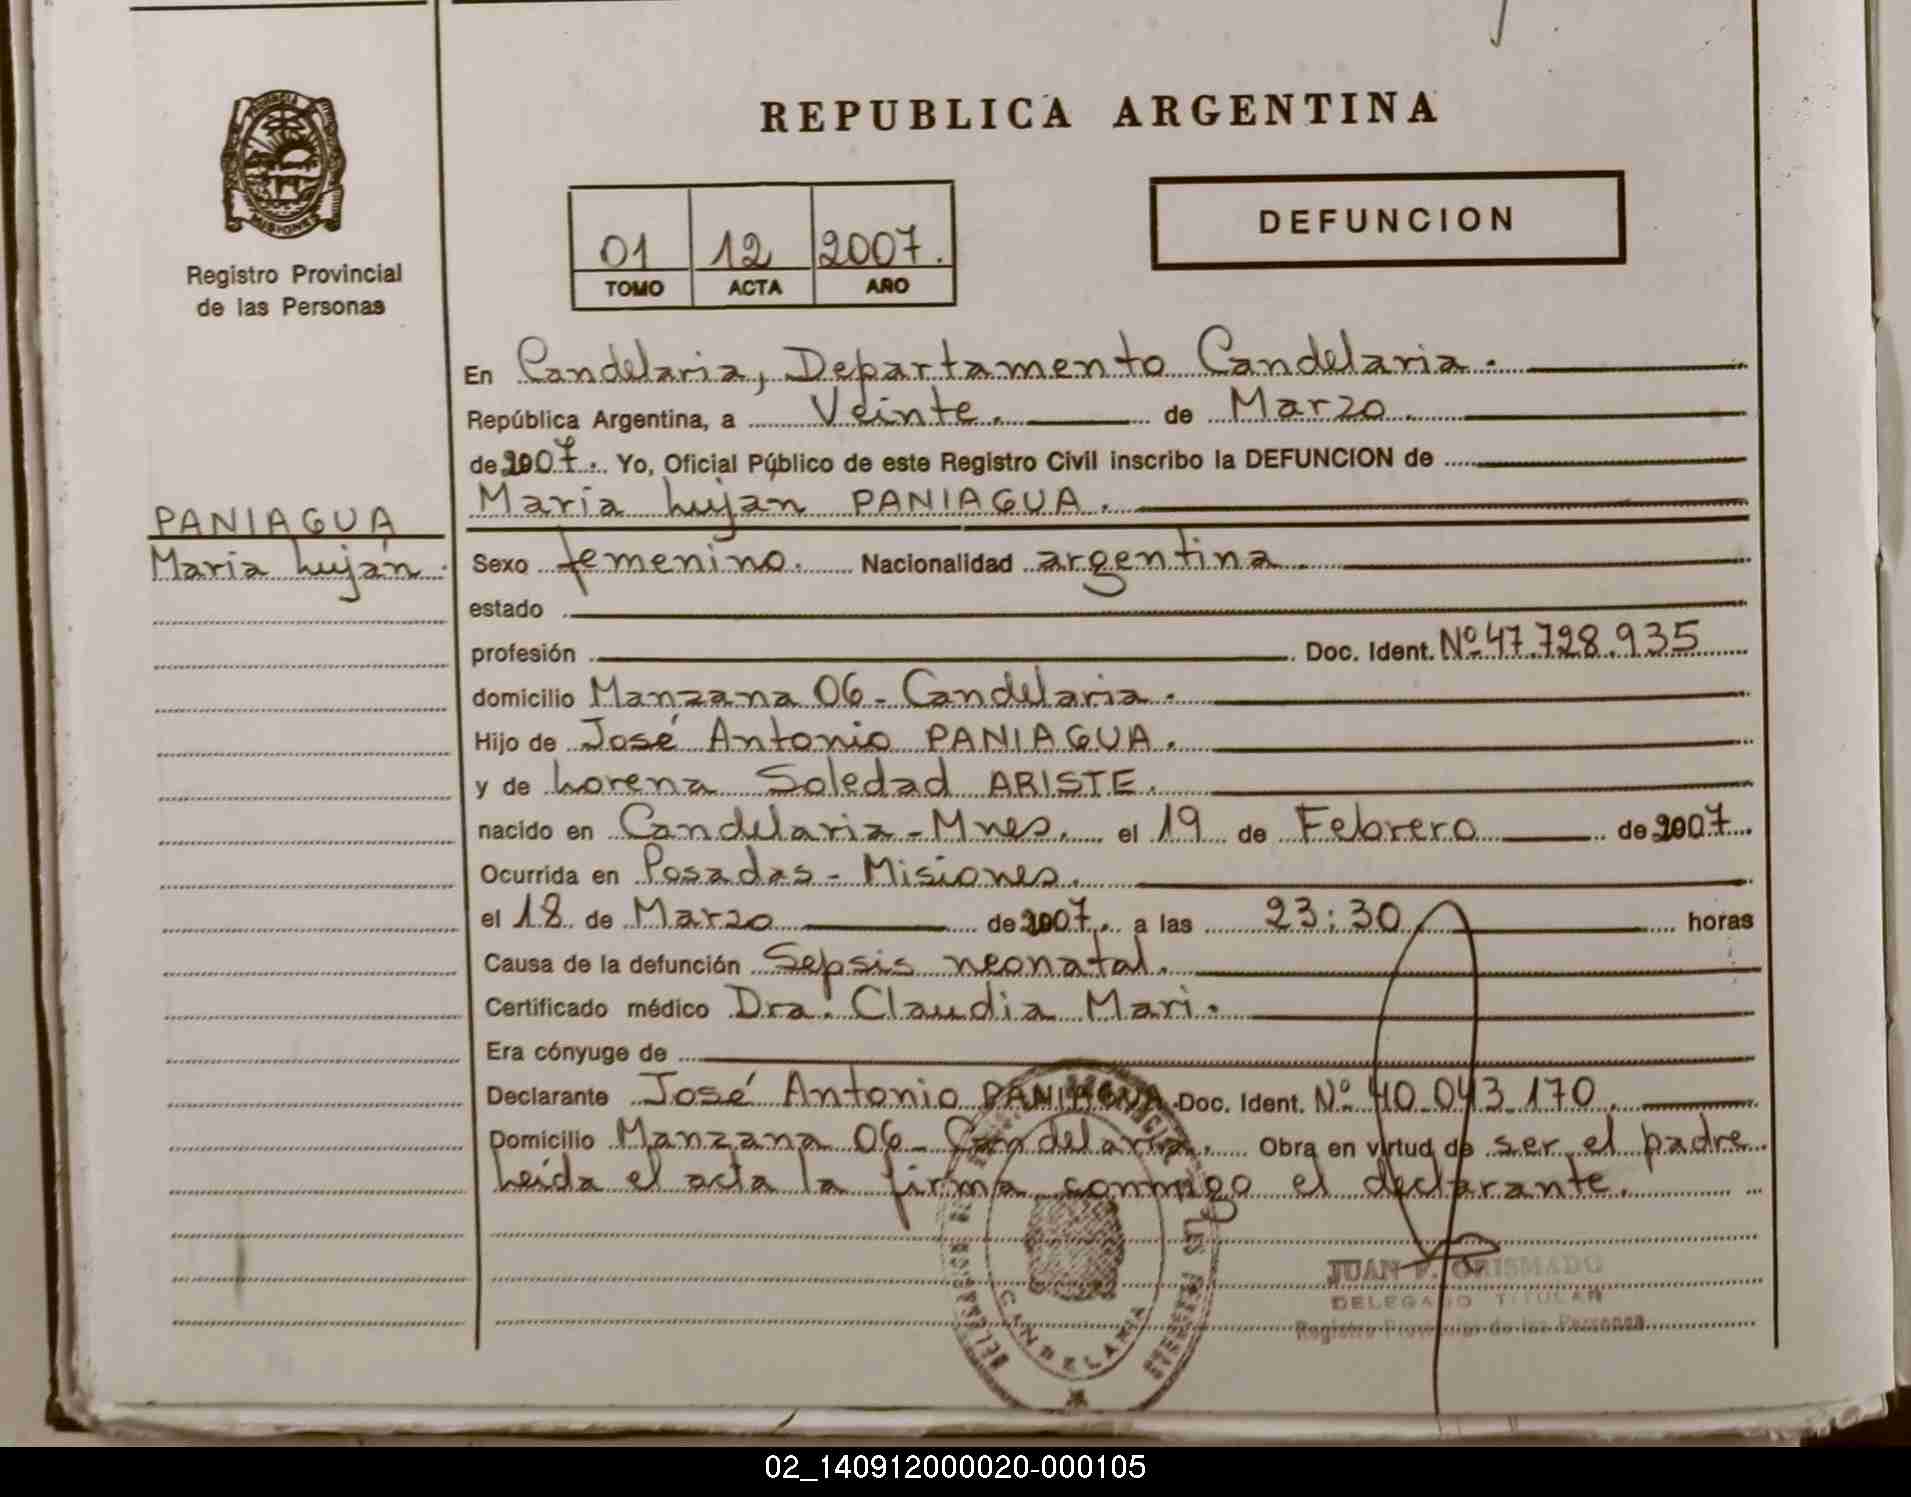 REPUBLICA ARGENTINA
PROVINCIA
MISIONES
Registro Provincial
de las Personas
01 12 2007.
TOMO ACTA AÑO
DEFUNCION
En Candelaria, Departamento Candelaria.
República Argentina, a Veinte. de Marzo.
de 2007. Yo, Oficial Público de este Registro Civil inscribo la DEFUNCION de
Maria Lujan PANIAGUA.
PANIAGUA
Maria Luján.
Sexo femenino. Nacionalidad argentina.
estado
profesión Doc. Ident. Nº 47.728.935
domicilio Manzana 06 - Candelaria.
Hijo de José Antonio PANIAGUA.
y de Lorena Soledad ARISTE.
nacido en Candelaria - Mnes. el 19 de Febrero de 2007.
Ocurrida en Posadas - Misiones.
el 18 de Marzo de 2007. a las 23:30 horas
Causa de la defunción Sepsis neonatal.
Certificado médico Dra. Claudia Mari.
Era cónyuge de
Declarante José Antonio PANIAGUA. Doc. Ident. Nº 40.043.170.
Domicilio Manzana 06 - Candelaria. Obra en virtud de ser el padre.
Leída el acta la firma conmigo el declarante.
JUAN GRISMADO
DELEGADO TITULAR
Registro Provincial de las Personas
CANDELARIA
02_140912000020-000105